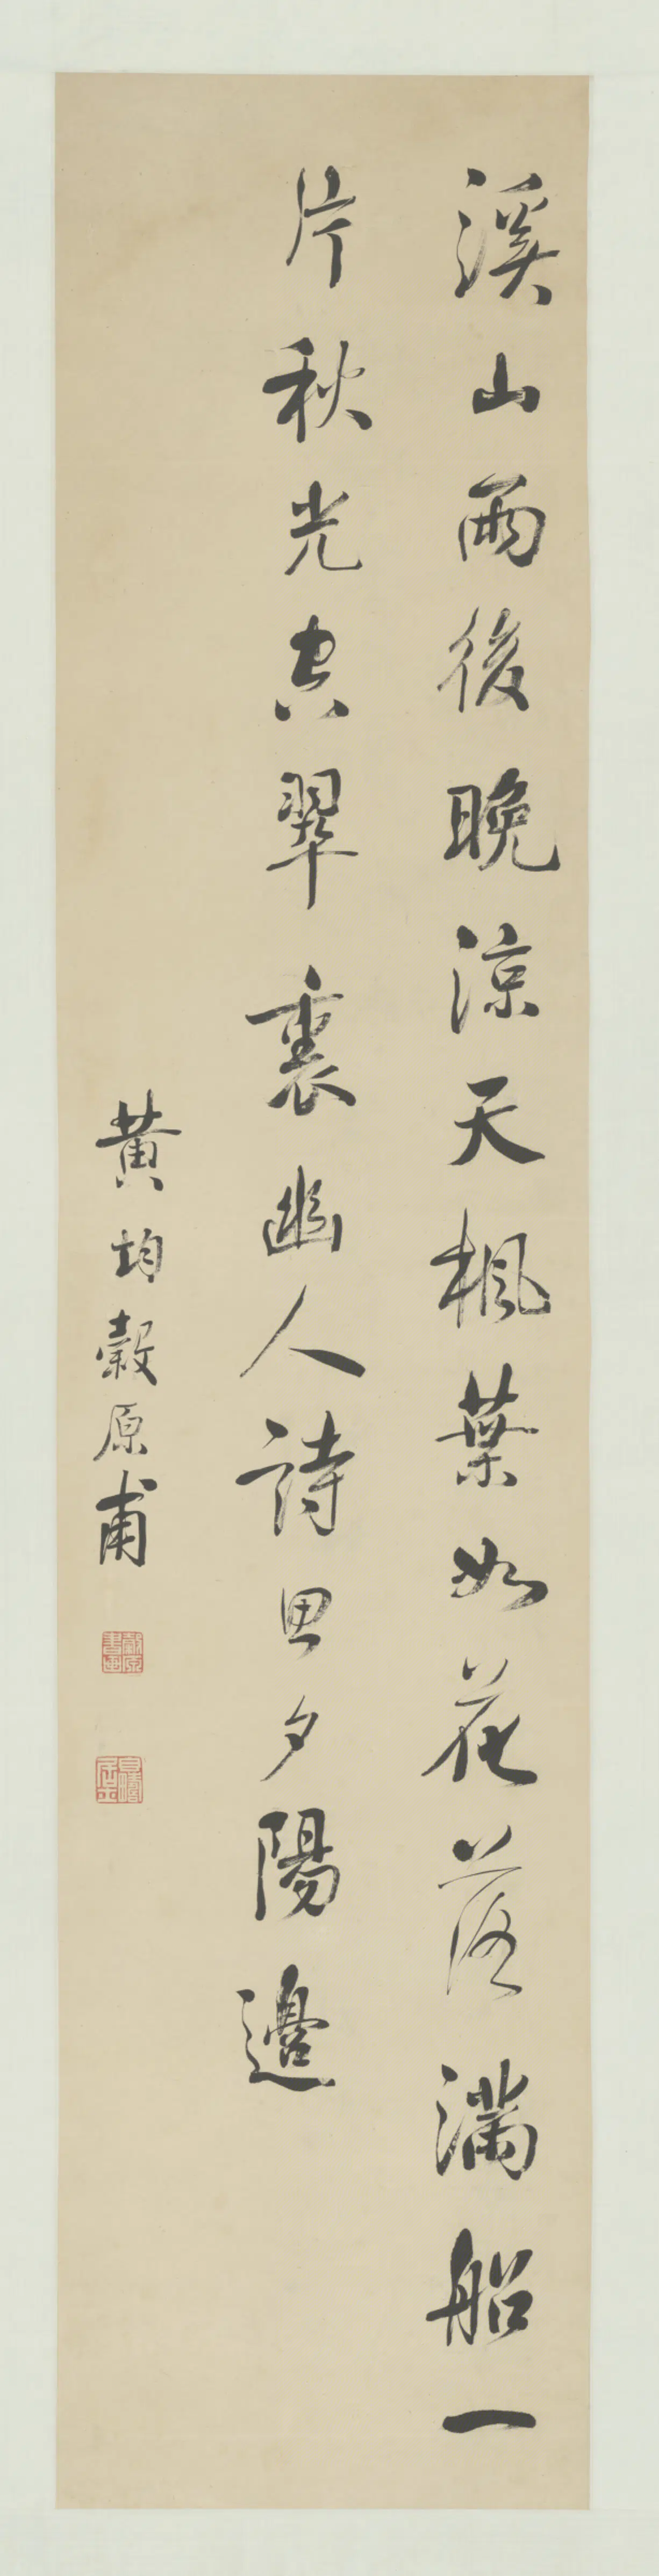 溪山雨後晚涼天楓葉如花落滿船一
片秋光空翠裏幽人詩思夕陽邊
黃均穀原甫
穀原書畫